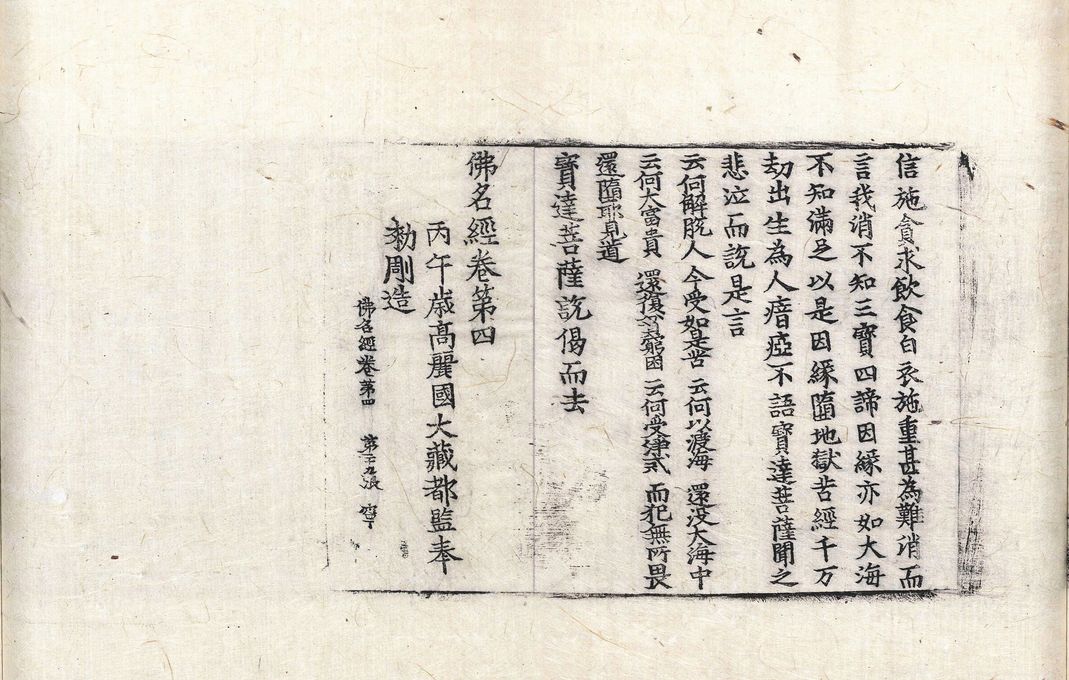 信施貪求飲食白衣施重甚為難消而
言我消不知三寶四諦因緣亦如大海
不知滿足以是因緣墮地獄苦經千万
劫出生為人瘖瘂不語寶達菩薩聞之
悲泣而說是言
云何解脫人今受如是苦 云何以渡海 還沒大海中
云何大富貴 還復貧窮困 云何受淨戒 而犯無所畏
還墮耶見道
寶達菩薩說偈而去
佛名經卷第四
丙午歳高麗國大藏都監奉
勅彫造
佛名經卷第四 第三九張 寧